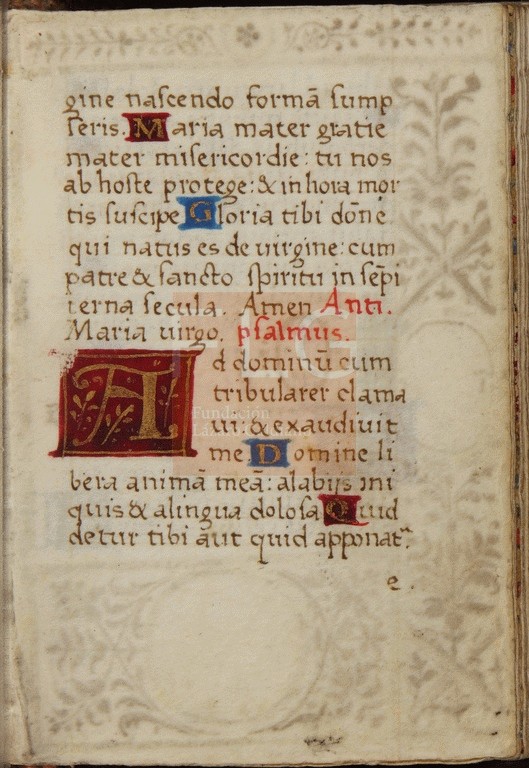 gine nascendo formā sump
seris. Maria mater gratie
mater misericordie: tu nos
ab hoste protege: & in hora mor
tis suscipe Gloria tibi dōne
qui natus es de uirgine: cum
patre & sancto spiritu in sēpi
terna secula. Amen Anti.
Maria uirgo. psalmus.
Ad dominū cum
tribularer clama
ui: & exaudiuit
me. Domine li
bera animā meā: alabijs ini
quis & alingua dolosa Quid
detur tibi aut quid apponat᷑
e.
Fundación